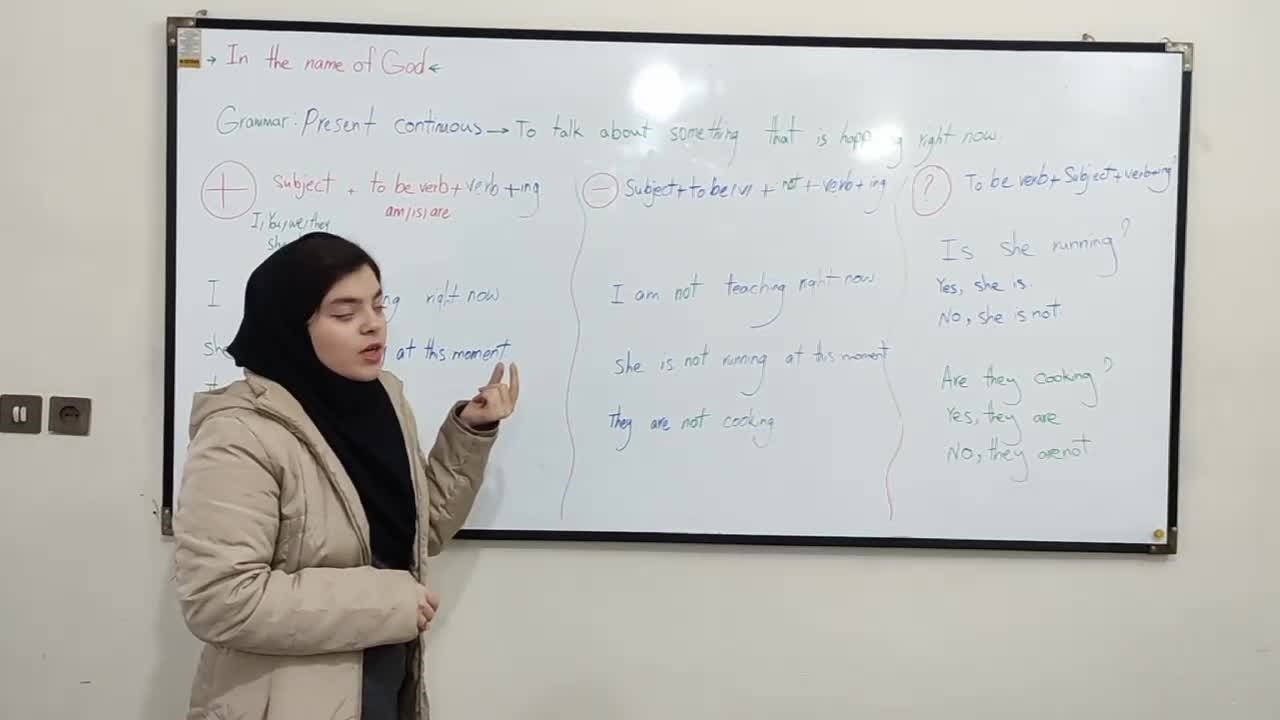 → In the name of God ←
Grammar: Present continuous → To talk about something that is right now.
+ Subject + to be verb + verb + ing
am/is/are
I, You, we, they
I right now
she at this moment
- Subject + to be (v) + not + verb + ing
I am not teaching right now
she is not running at this moment
They are not cooking
? To be verb + Subject + verb + ing?
Is she running?
Yes, she is.
No, she is not.
Are they cooking?
Yes, they are
No, they are not.